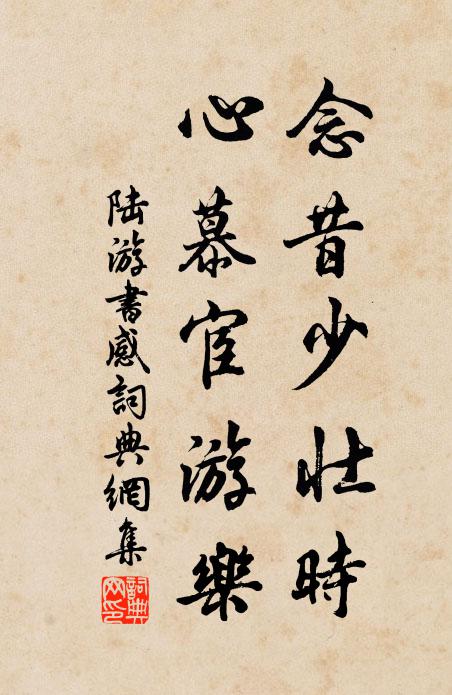 念昔少壯時
心慕宦游樂
陆游書感詞典網集
詞典网印